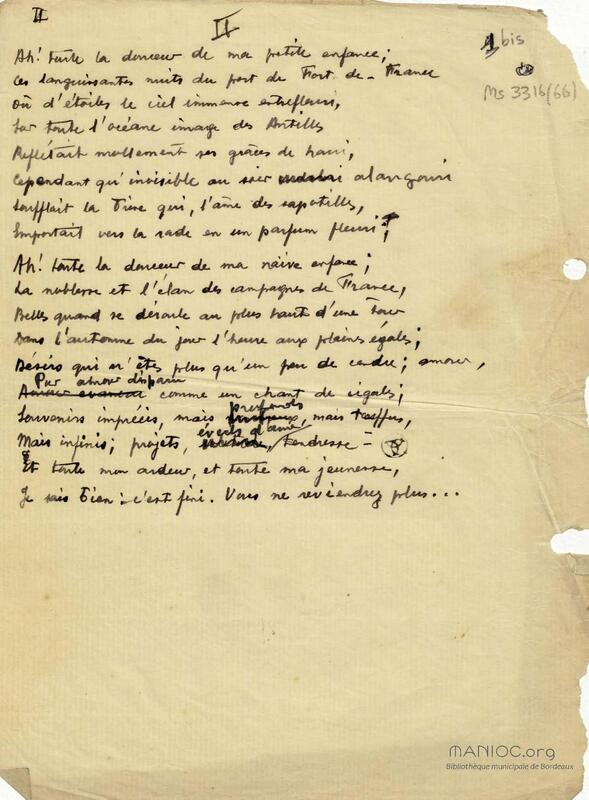 II
II
1 bis
Ms 3316 (66)
Ah! toute la douceur de ma petite enfance;
Ces languissantes nuits du port de Fort-de-France
Où d'étoiles le ciel immense entrefleuri,
Sur toute l'océane image des Antilles
Reflétait mollement ses grâces de houri,
Cependant qu'invisible au soir alangouri
Soufflait la qui, l'âme des sapotilles,
Emportait vers la rade en un parfum fleuri;
Ah! toute la douceur de ma naïve enfance;
La noblesse et l'élan des campagnes de France,
Belles quand se déroule au plus haut d'une tour
Dans l'automne du jour l'heure aux plaines égales;
Désirs qui n'êtes plus qu'un peu de cendre; amour,
Pur amour disparu
comme un chant de cigales;
profonds
Souvenirs imprécis, mais , mais touffus,
éveils d'âme
Mais infinis; projets, , tendresse –
Et toute mon ardeur, et toute ma jeunesse,
Je sais bien: c'est fini. Vous ne reviendrez plus...
MANIOC.org
Bibliothèque municipale de Bordeaux